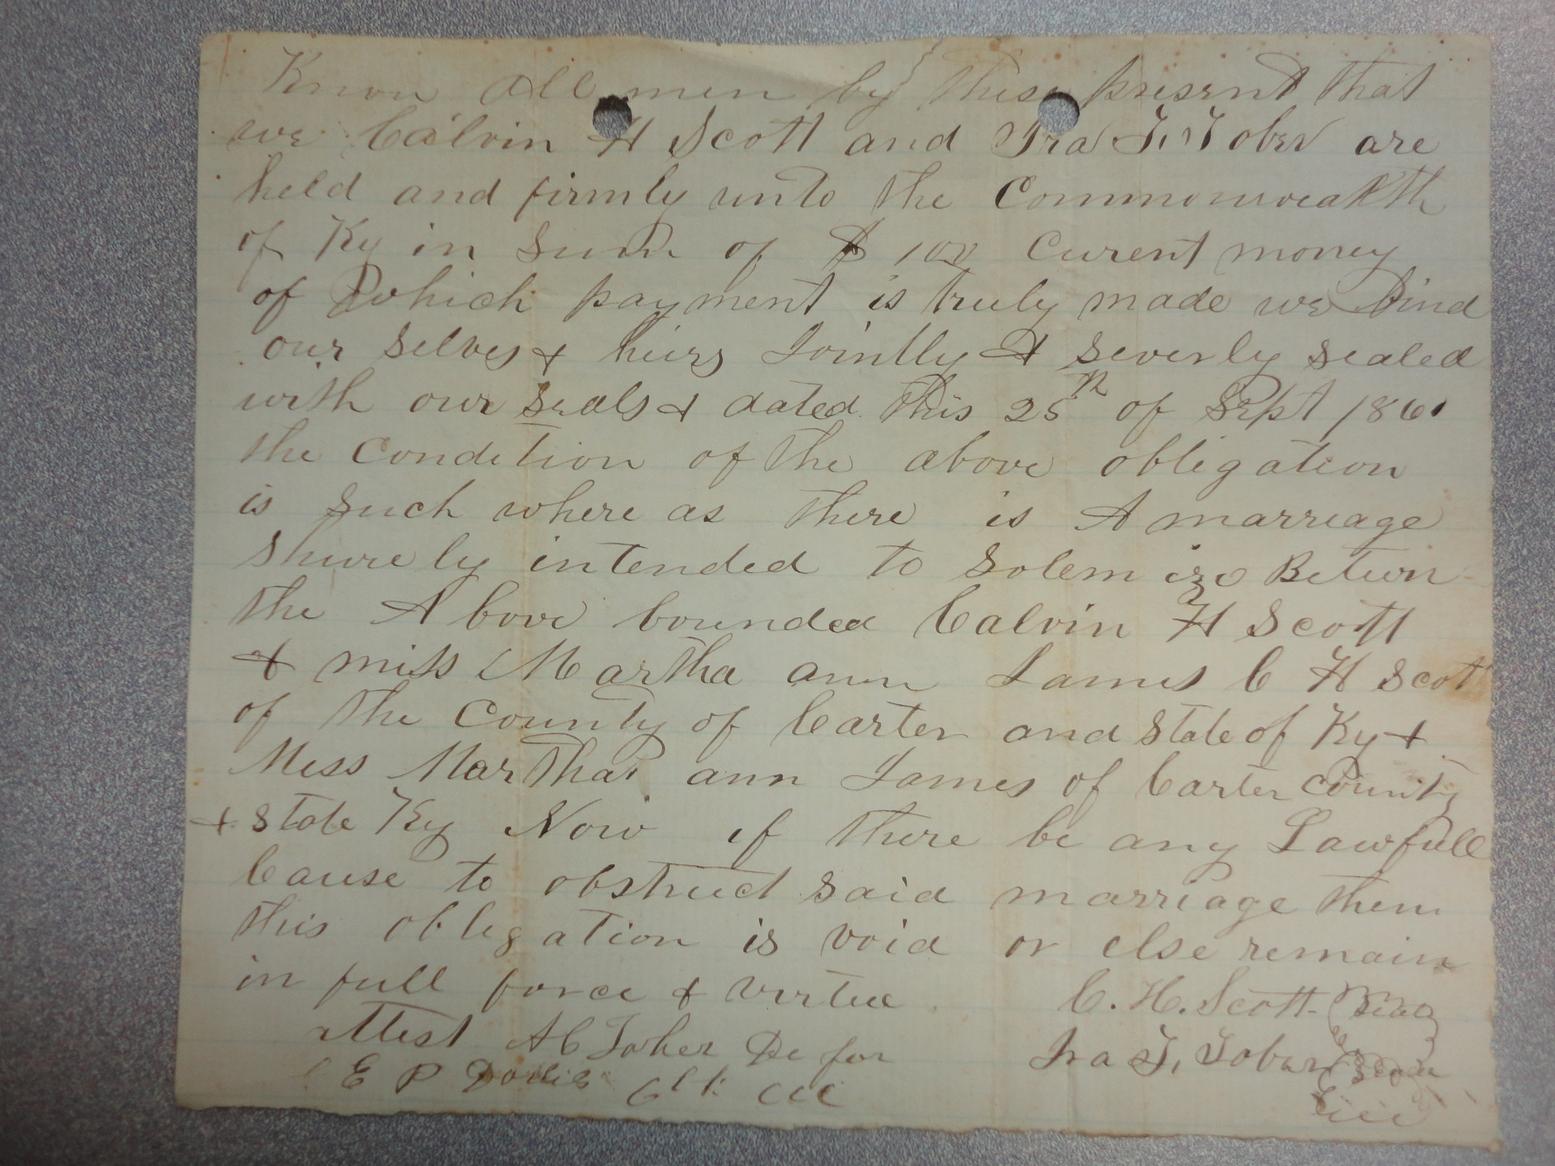 Know all men by these present that
we Calvin H Scott and Ira T. Tober are
held and firmly unto the Commonwealth
of Ky in Sum of $ 100 Curent money
of which payment is truly made we bind
our selves & heirs Jointly & severly sealed
with our seals & dated this 25th of Sept 1861
the Condition of the above obligation
is such where as there is A marriage
Shurely intended to Solemize Betwen
the Above bounded Calvin H Scott
& miss Martha ann James C H Scott
of the County of Carter and State of Ky &
Miss Martha ann James of Carter County
& State Ky Now if there be any Lawfull
Cause to obstruct said marriage them
this obligation is void or else remain
in full force & virtue C. H. Scott Seal
Attest A C Toher De for Ira T. Tober Seal
E P Davis Clk CCC